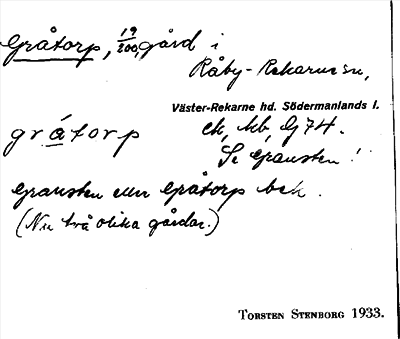 Gråtorp, 19/200, gård i
Råby-Rekarne sn,
Väster-Rekarne hd. Södermanlands l.
gråtorp
ek, kb, Gg 74.
Se Gransten!
Gransten eller Gråtorp bek.
(Nu två olika gårdar.)
TORSTEN STENBORG 1933.